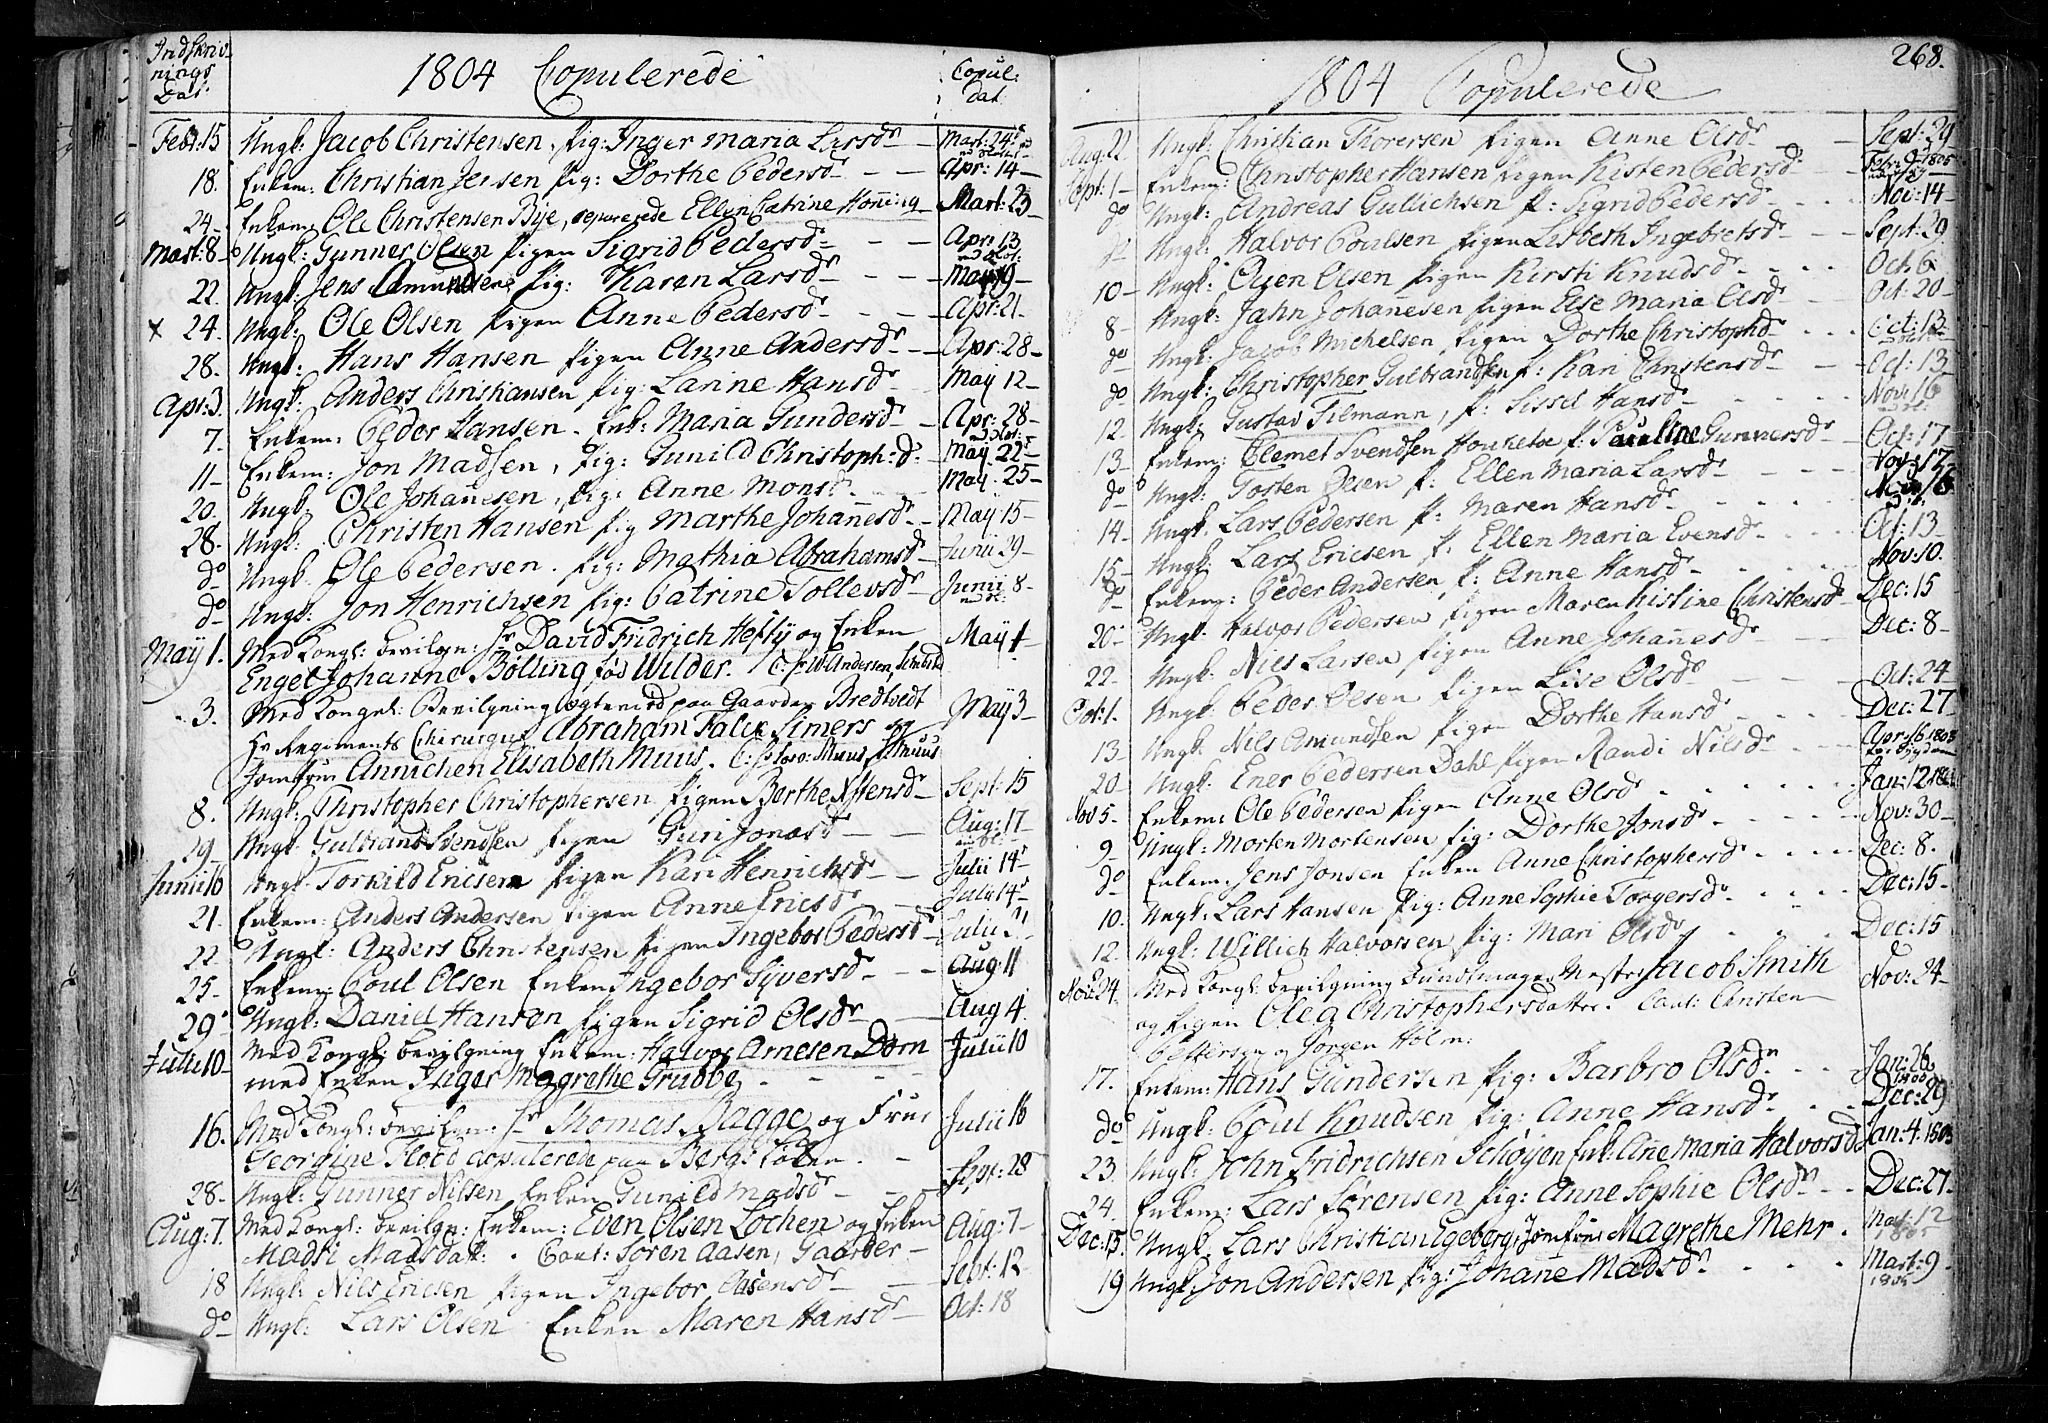 Indskriv-
nings
Dat:
1804 Copulerede
Copul:
dat
Febr:15 Ungk: Jacob Christensen, Pig: Inger Maria Larsdr Mart:24
18. Enkem: Christian Jensen Pig: Dorthe Pedersdr Apr: 14
24. Enkem: Ole Christensen Bye, separerede Ellen Catrine Honning Mart: 23
Mart:8 Ungk: Gunner Olsen Pigen Sigrid Pedersdr Apr: 13
22. Ungk: Jens Amundsen Pig: Karen Larsdr May 19
x 24. Ungk: Ole Olsen Pigen Anne Pedersdr Apr: 21
28. Ungk: Hans Hansen Pigen Anne Andersdr Apr: 28
Apr:3. Ungk: Anders Christiansen Pig: Larine Hansdr May 12
7. Enkem: Peder Hansen. Enk: Maria Gundersdr Apr: 28
11 Enkem: Jon Madsen, Pig: Gunild Christoph:dr May 22
20. Ungk: Ole Johannesen, Pig: Anne Monsdr May. 25
28. Ungk: Christen Hansen Pig Marthe Johannesdr May 15
do Ungk. Ole Pedersen. Pig: Mathia Abrahamsdr Junii 29
do Ungk: Jon Henrichsen Pig: Catrine Tollevsdr Junii 8
May 1. Med Kongl: bevilgn: Hr David Fridrich Hefty og Enken May 1
Engel Johanne Bølling, fød Wilder. C: Hr W: Andersen,
3. Med Kongel: Bevilgning ægteviet paa Gaarden Bredtvedt May 3
Hr Regiments Chirurgus Abraham Falck Simers og
Jomfrue Annichen Elisabeth Muus. C: Muus
8. Ungk: Christopher Christophersen Pigen Berthe Sept: 15
29 Ungk. Gulbrand Svendsen Pigen Guri Jonasdr Aug: 17
Junii 16 Ungk: Torkild Ericsen Pigen Kari Henrichsdr Julii 14
21. Enkem: Anders Andersen Pigen Anne Ericsdr Julii 14
22 Ungk: Anders Christensen Pigen Ingebor Pedersdr Julii 21
25. Enkem: Poul Olsen Enken Ingebor Syversdr Aug: 11
29 Ungk: Daniel Hansen Pigen Sigrid Olsdr Aug 4
Julii 10 Med Kongl: bevilgning Enkem: Halvor Arnesen Dorn Julii 10
med Enken Inger Magrethe Grubbe
16. Med Kongl: bevilgn: Hr Thomas Bagge og Frue Julii 16
Georgine Floed copulerede paa Berg:
28 Ungk: Gunner Nilsen Enken Gunild Madsdr Sept: 28
Aug:7. Med Kongl: bevilgn: Enkem: Even Olsen Lochen og Enken Aug: 7
Madsi Madsdatr. Caut: Soren Aasen, Gaarder
18 Ungk: Nils Ericsen Pigen Ingebor Sept: 12
do Ungk: Lars Olsen Enken Maren Hansdr Oct: 18
268.
1804 Copulerede
Aug:22 Ungk: Christian Thorersen Pigen Anne Olsdr Sept: 29
Sept:1 Enkem: Christopher Hansen Pigen Kisten Pedersdr 1805
do Ungk: Andreas Gullichsen P: Sigrid Pedersdr Nov: 14
do Ungk: Halvor Poulsen Pigen Lisbeth Ingebretsdr Sept: 29
10 Ungk: Even Olsen Pigen Kirsti Knudsdr Oct: 6
8 Ungk: Jahn Johannesen Pigen Else Maria Olsdr Oct: 20
do Ungk: Jacob Michelsen Pigen Dorthe Christophdr Oct: 13
do Ungk: Christopher Gulbrandsen P: Kari Christensdr Oct: 13
12 Ungk: Gustav Tilmann, P: Sissel Hansdr Nov: 16
13 Enkem: Clemet Svendsen P: Pauline Gunnersdr Oct: 17
do Ungk: Tosten Olsen P: Ellen Maria Larsdr Nov: 17
14 Ungk: Lars Pedersen P: Maren Hansdr
15 Ungk: Lars Ericsen P: Ellen Maria Evensdr Oct: 13
do Enkem: Peder Andersen P: Anne Hansdr Nov: 10.
20 Ungk: Halvor Pedersen Pigen Maren Kistine Christensdr Dec: 15
22 Ungk: Nils Larsen Pigen Anne Johannesdr Dec: 8
Oct:1. Ungk: Peder Olsen Pigen Lise Olsdr Oct: 24
13 Ungk: Nils Amundsen Pigen Dorthe Hansdr Dec: 27
20 Ungk: Ener Pedersen Dahl Pigen Randi Nilsdr Apr: 16
Nov 5 Enkem: Ole Pedersen Pigen Anne Olsdr Jan: 12
9 Ungk: Morten Mortensen Pig: Dorthe Jonsdr Nov: 30
do Enkem. Jens Jonsen Enken Anne Christophersdr Dec: 8.
10. Ungk: Lars Hansen Pig: Anne Sophie Torgersdr Dec: 15
12. Ungk: Willich Halvorsen Pig: Mari Olsdr Dec: 15
Nov:24. Med Kongl: bevilgning Bundtmager Mester Jacob Smith Nov: 24
og Pigen Olea Christophersdatter. Caut: Christen
Pettersen og Jørgen Holm:
17. Enkem: Hans Gundersen Pig: Barbro Olsdr Jan: 26
do Ungk: Poul Knudsen Pig: Anne Hansdr Dec: 29
23. Ungk: John Fridrichsen Schøyen Enk: Ane Maria Halvorsdr Jan: 4. 1805
24. Enkem: Lars Sørensen Pig: Anne Sophie Olsdr Dec: 27
Dec:15. Ungk: Lars Christian Egeberg, Jomfrue Magrethe Mehr. Mart: 12
1805
19 Ungk: Jon Andersen Pig: Johane Madsdr Mart: 9
1805